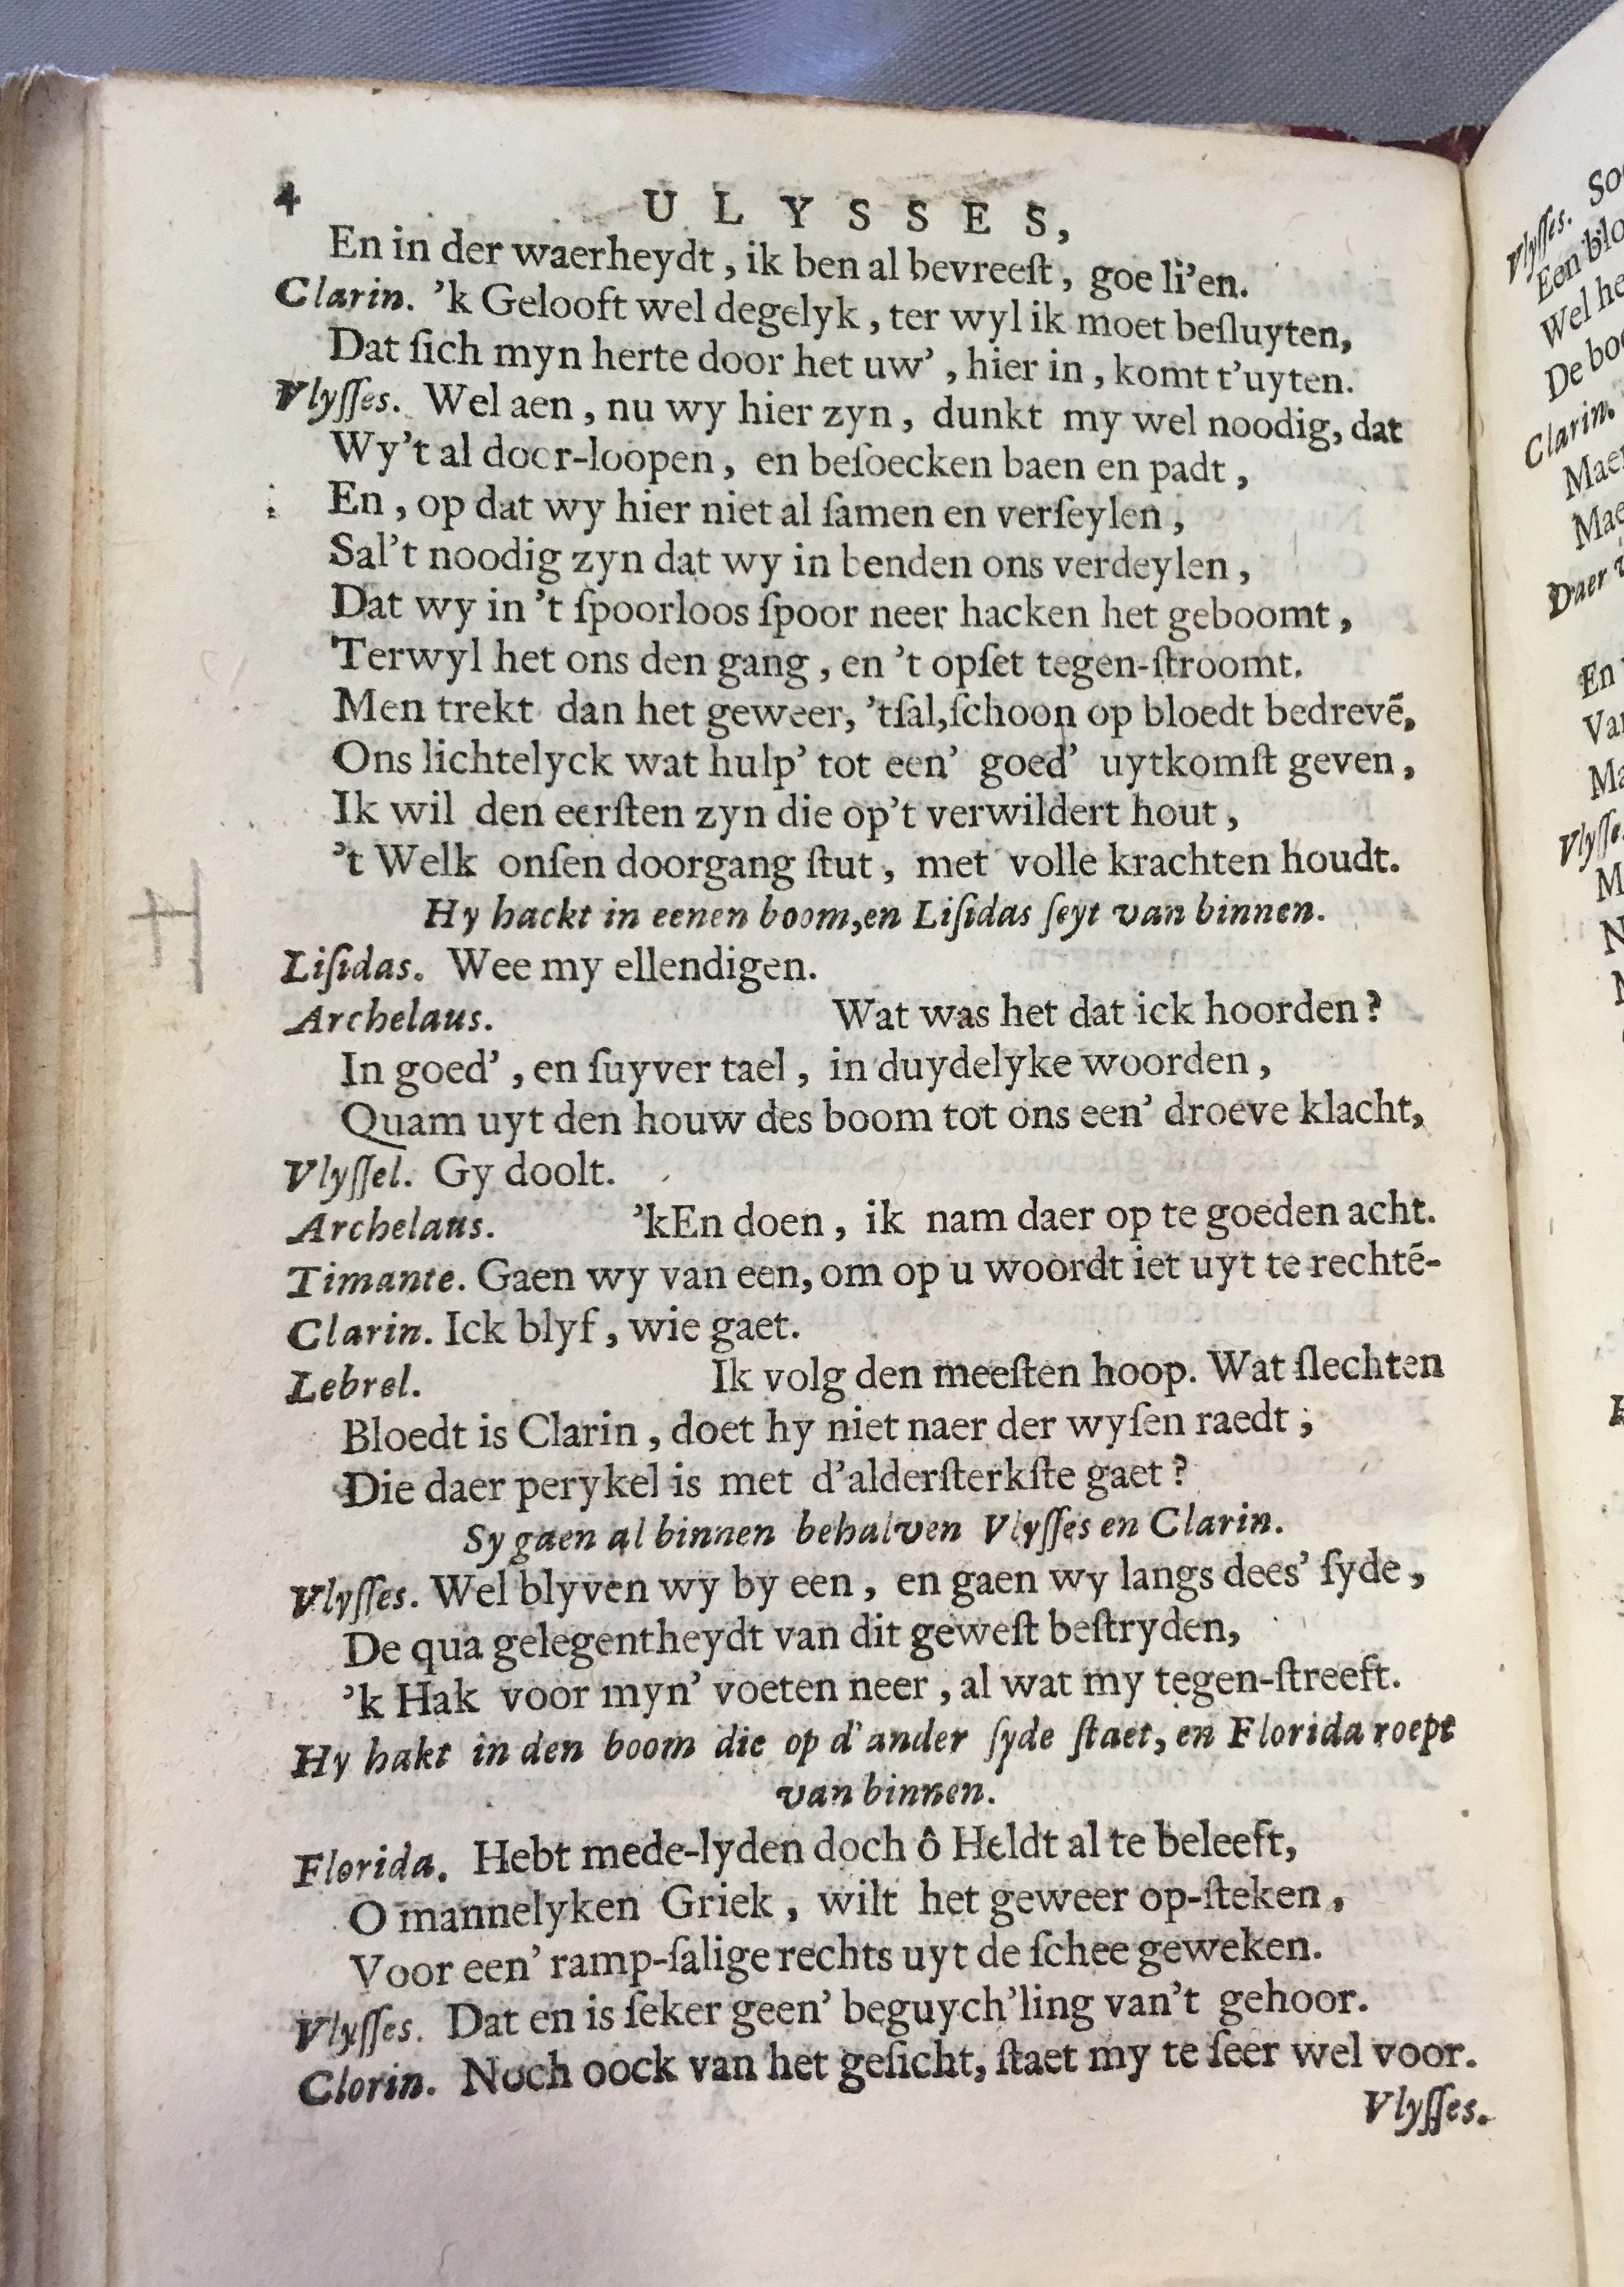 4 ULYSSES,
En in der waerheydt, ik ben al bevreeſt, goe li'en.
Clarin. 'k Gelooft wel degelyk, ter wyl ik moet beſluyten,
Dat ſich myn herte door het uw', hier in, komt t'uyten.
Vlyſſes. Wel aen, nu wy hier zyn, dunkt my wel noodig, dat
Wy't al door-loopen, en beſoecken baen en padt,
En, op dat wy hier niet al ſamen en verſeylen,
Sal't noodig zyn dat wy in benden ons verdeylen,
Dat wy in 't ſpoorloos ſpoor neer hacken het geboomt,
Terwyl het ons den gang, en 't opſet tegen-ſtroomt.
Men trekt dan het geweer, 'tſal,ſchoon op bloedt bedrevē,
Ons lichtelyck wat hulp' tot een' goed' uytkomſt geven,
Ik wil den eerſten zyn die op't verwildert hout,
't Welk onſen doorgang ſtut, met volle krachten houdt.
Hy hackt in eenen boom,en Liſidas ſeyt van binnen.
Liſidas. Wee my ellendigen.
Archelaus. Wat was het dat ick hoorden?
In goed', en ſuyver tael, in duydelyke woorden,
Quam uyt den houw des boom tot ons een' droeve klacht,
Vlyſſel. Gy doolt.
Archelaus. 'kEn doen, ik nam daer op te goeden acht.
Timante. Gaen wy van een, om op u woordt iet uyt te rechtē-
Clarin. Ick blyf, wie gaet.
Lebrel. Ik volg den meeſten hoop. Wat ſlechten
Bloedt is Clarin, doet hy niet naer der wyſen raedt;
Die daer perykel is met d'alderſterkſte gaet?
Sy gaen al binnen behalven Vlyſſes en Clarin.
Vlyſſes. Wel blyven wy by een, en gaen wy langs dees' ſyde,
De qua gelegentheydt van dit geweſt beſtryden,
'k Hak voor myn' voeten neer, al wat my tegen-ſtreeft.
Hy hakt in den boom die op d'ander ſyde ſtaet, en Florida roept
van binnen.
Florida. Hebt mede-lyden doch ô Heldt al te beleeft,
O mannelyken Griek, wilt het geweer op-ſteken,
Voor een' ramp-ſalige rechts uyt de ſchee geweken.
Vlyſſes. Dat en is ſeker geen' beguych'ling van't gehoor.
Clorin. Noch oock van het geſicht, ſtaet my te ſeer wel voor.
Vlyſſes.
Vlyſſes. So
Een blo
Wel he
De boo
Clarin.
Maer
Mae
Daer
En
Van
Ma
Vlyſſe
M
N